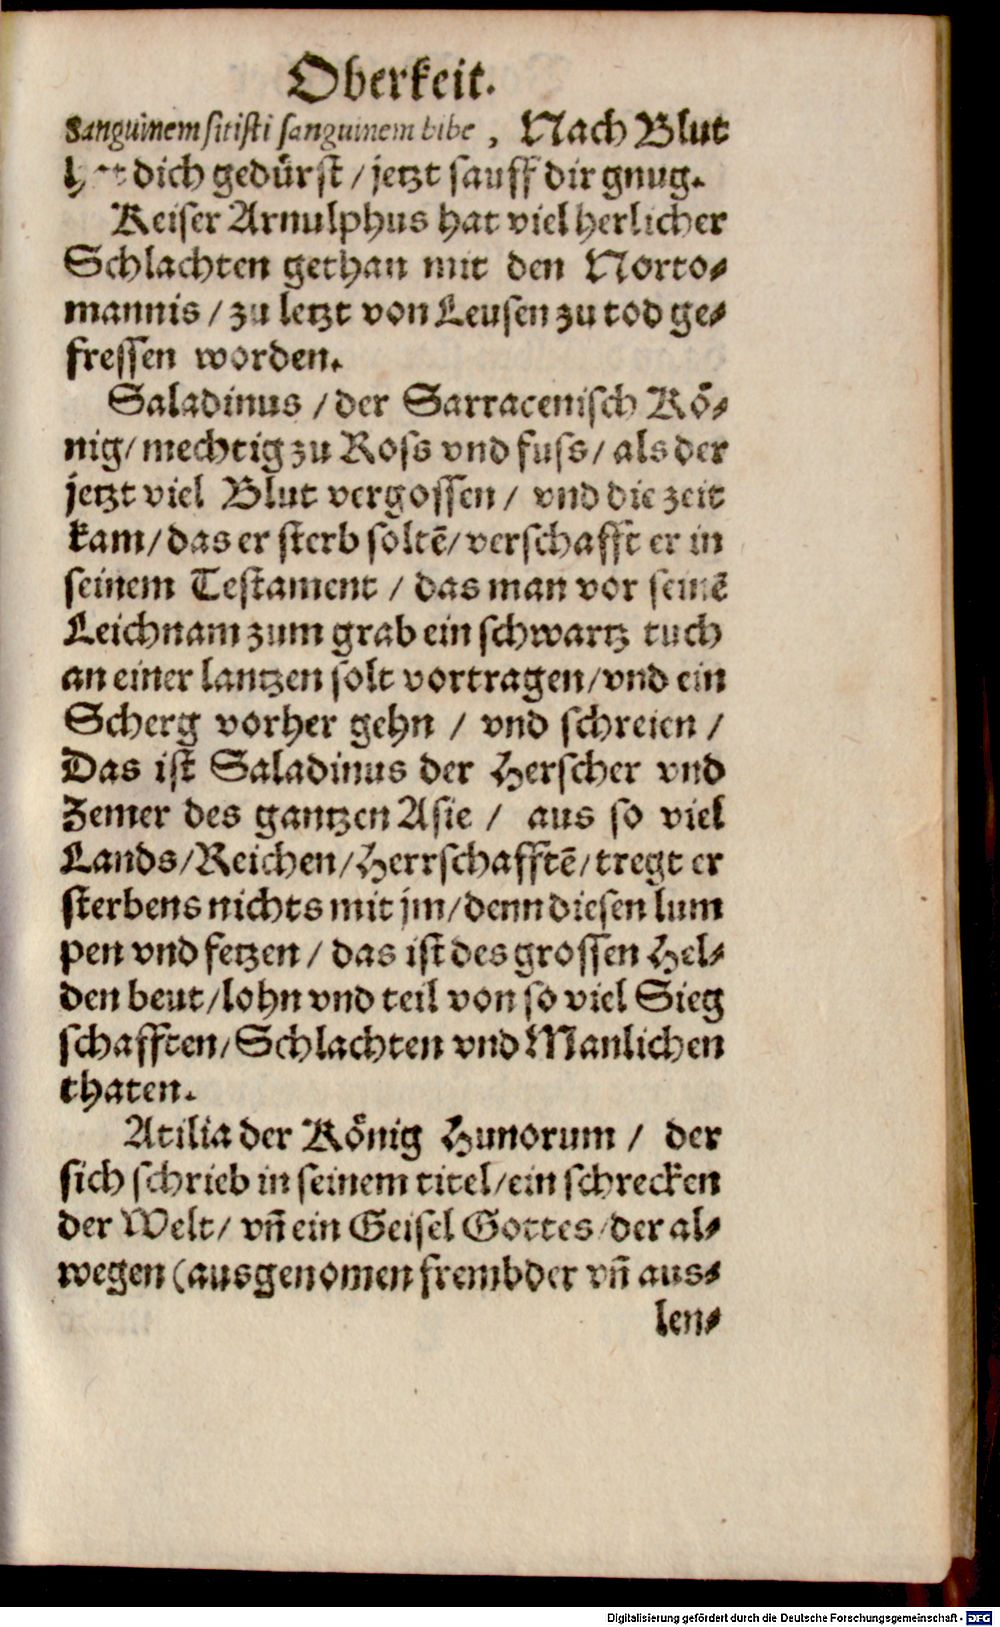 Oberkeit.
Sanguinem sitisti sanguinem bibe, Nach Blut
dich gedürst / jetzt sauff dir gnug.
Keiser Arnulphus hat viel herlicher
Schlachten gethan mit den Norto-
mannis / zu letzt von Leusen zu tod ge-
fressen worden.
Saladinus / der Sarracenisch Kö-
nig / mechtig zu Ross vnd fuss / als der
jetzt viel Blut vergossen / vnd die zeit
kam / das er sterb soltē / verschafft er in
seinem Testament / das man vor seinē
Leichnam zum grab ein schwartz tuch
an einer lantzen solt vortragen / vnd ein
Scherg vorher gehn / vnd schreien /
Das ist Saladinus der Herscher vnd
Zemer des gantzen Asie / aus so viel
Lands / Reichen / Herrschafftē / tregt er
sterbens nichts mit jm / denn diesen lum
pen vnd fetzen / das ist des grossen Hel-
den beut / lohn vnd teil von so viel Sieg
schafften / Schlachten vnd Manlichen
thaten.
Atilia der König Hunorum / der
sich schrieb in seinem titel / ein schrecken
der Welt / vñ ein Geisel Gottes / der al-
wegen (ausgenomen frembder vñ aus-
len-
Digitalisierung gefördert durch die Deutsche Forschungsgemeinschaft - DFG